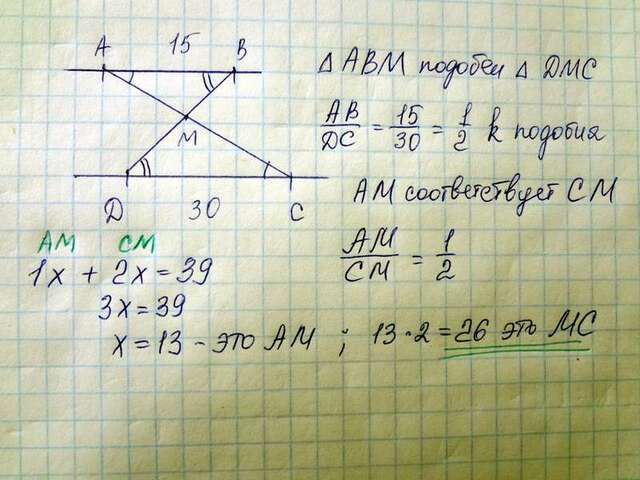 A 15 B
M
D 30 C
△ ABM подобен △ DMC
AB/DC = 15/30 = 1/2 k подобия
AM соответствует CM
AM/CM = 1/2
AM CM
1x + 2x = 39
3x = 39
x = 13 - это AM ; 13·2 = 26 это MC